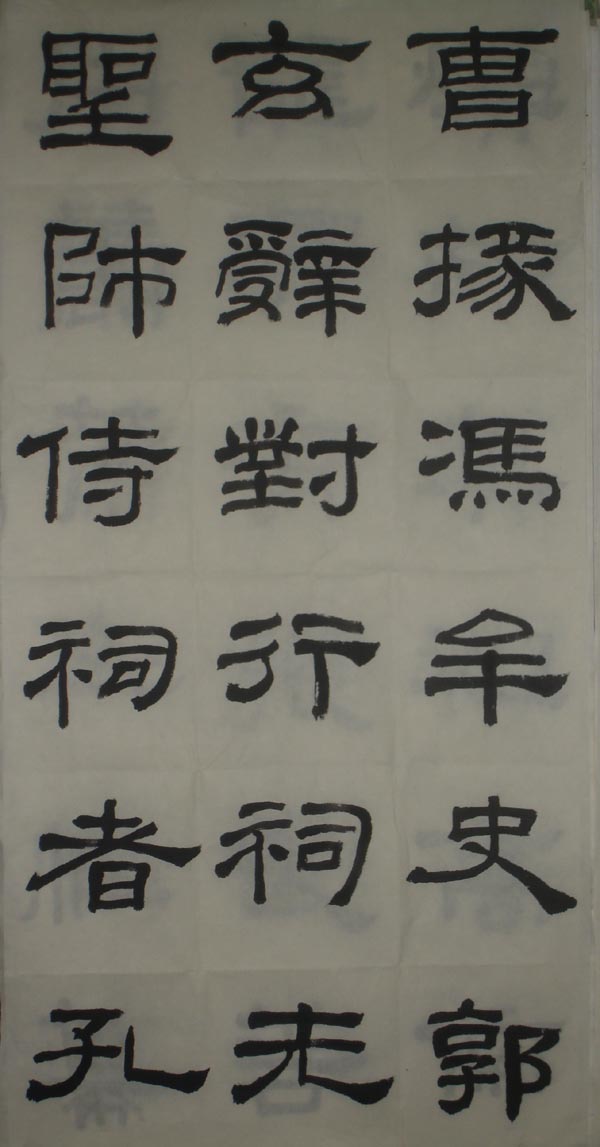 曹掾馮牟史郭
玄辭對行祠先
聖師侍祠者孔